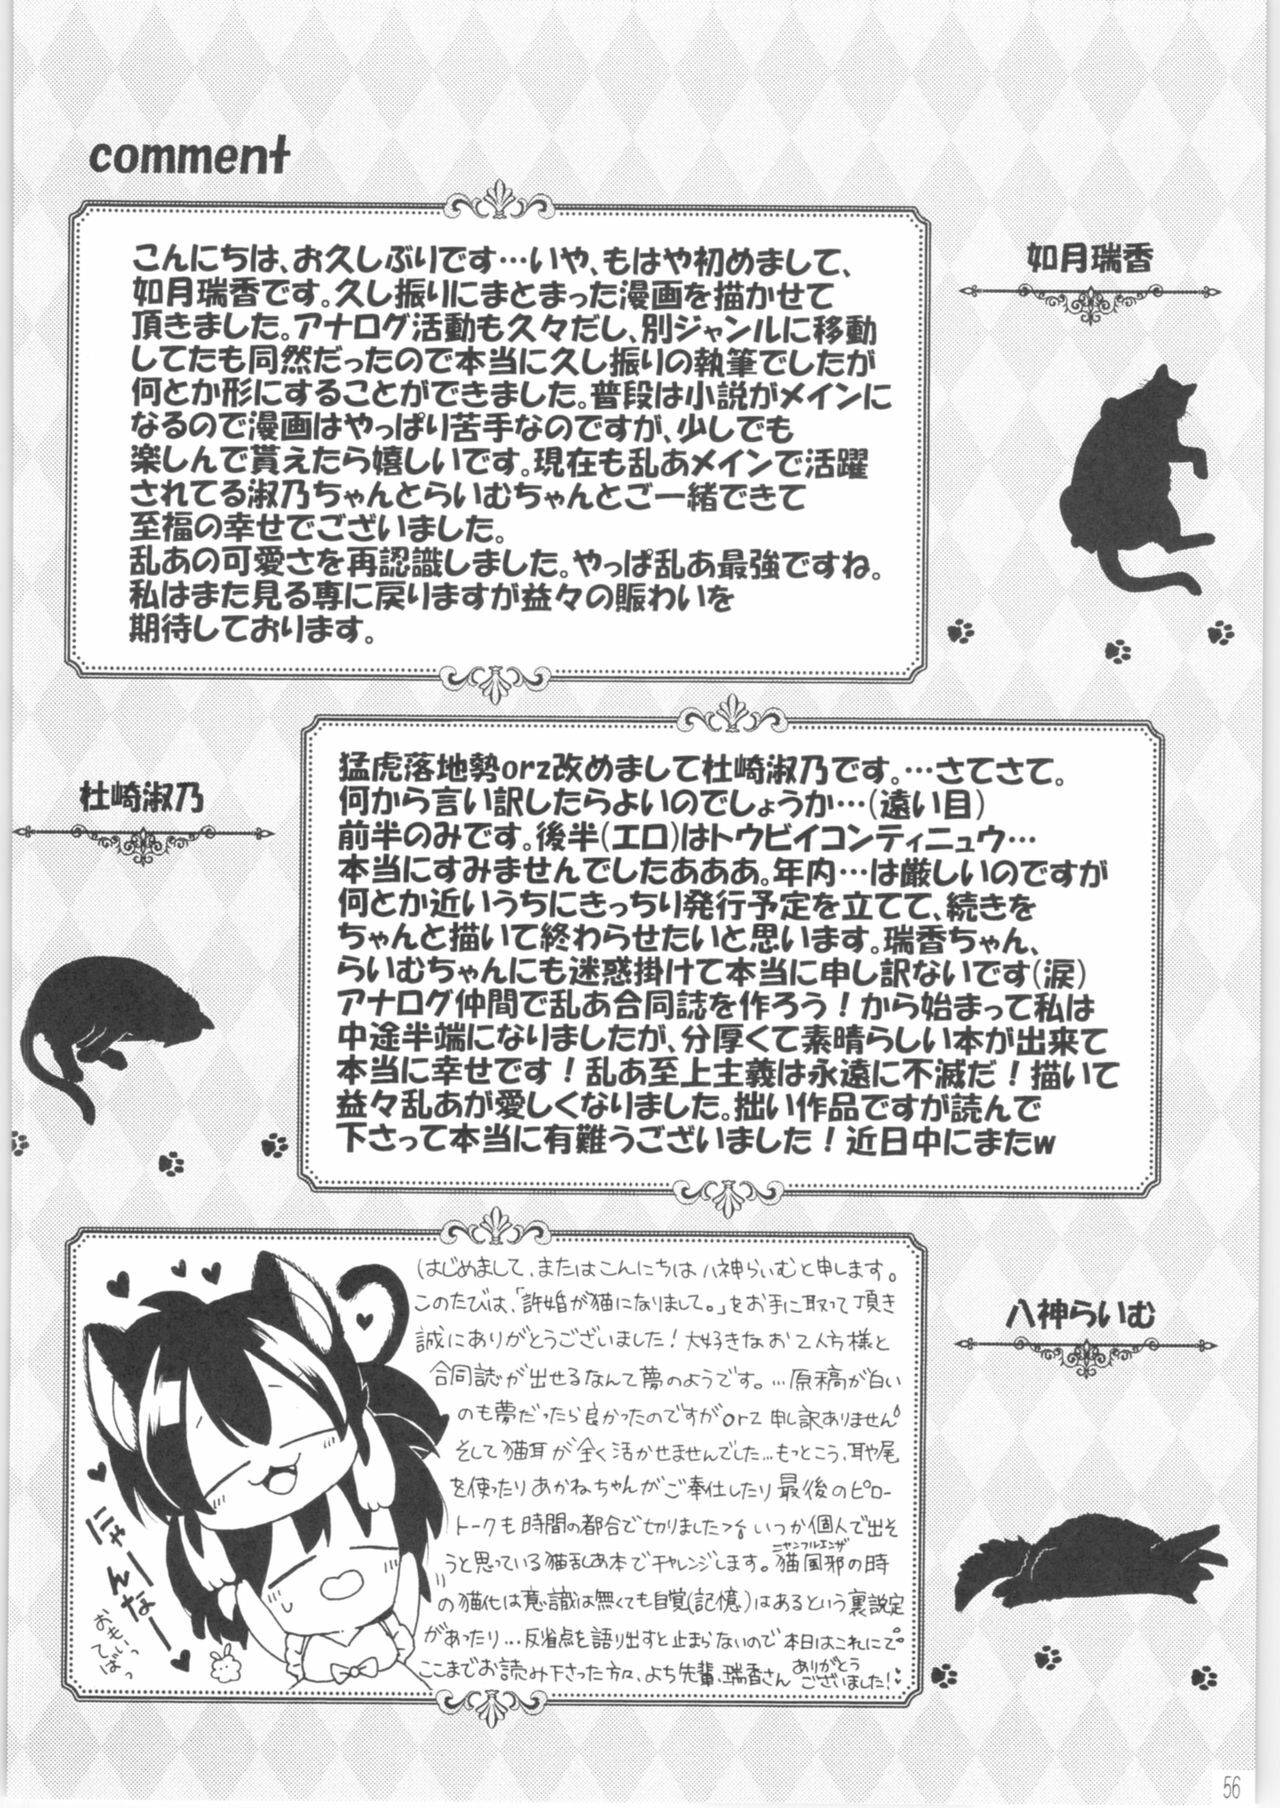 comment
如月瑞香
こんにちは、お久しぶりです…いや、もはや初めまして、
如月瑞香です。久し振りにまとまった漫画を描かせて
頂きました。アナログ活動も久々だし、別ジャンルに移動
してたも同然だったので本当に久し振りの執筆でしたが
何とか形にすることができました。普段は小説がメインに
なるので漫画はやっぱり苦手なのですが、少しでも
楽しんで貰えたら嬉しいです。現在も乱あメインで活躍
されてる淑乃ちゃんとらいむちゃんとご一緒できて
至福の幸せでございました。
乱あの可愛さを再認識しました。やっぱ乱あ最強ですね。
私はまた見る専に戻りますが益々の賑わいを
期待しております。
杜崎淑乃
猛虎落地勢orz改めまして杜崎淑乃です。…さてさて。
何から言い訳したらよいのでしょうか…(遠い目)
前半のみです。後半(エロ)はトウビイコンティニュウ…
本当にすみませんでしたあああ。年内…は厳しいのですが
何とか近いうちにきっちり発行予定を立てて、続きを
ちゃんと描いて終わらせたいと思います。瑞香ちゃん、
らいむちゃんにも迷惑掛けて本当に申し訳ないです(涙)
アナログ仲間で乱あ合同誌を作ろう！から始まって私は
中途半端になりましたが、分厚くて素晴らしい本が出来て
本当に幸せです！乱あ至上主義は永遠に不滅だ！描いて
益々乱あが愛しくなりました。拙い作品ですが読んで
下さって本当に有難うございました！近日中にまたw
八神らいむ
はじめまして、またはこんにちは八神らいむと申します。
このたびは、「許婚が猫になりまして。」をお手に取って頂き
誠にありがとうございました！大好きなお2人方様と
合同誌が出せるなんて夢のようです。…原稿が白い
のも夢だったら良かったのですがorz 申し訳ありません
そして猫耳が全く活かせませんでした…もっとこう、耳や尾
を使ったりあかねちゃんがご奉仕したり最後のピロー
トークも時間の都合で切りました いつか個人で出そ
うと思っている猫乱あ本でチャレンジします。猫風邪の時
ニャンフルエンザ
の猫化は意識は無くても自覚(記憶)はあるという裏設定
があったり…反省点を語り出すと止まらないので本日はこれにて
ここまでお読み下さった方々、よち先輩、瑞香さんありがとう
ございました！
にゃーんなー
おもいっ
てばっ
56